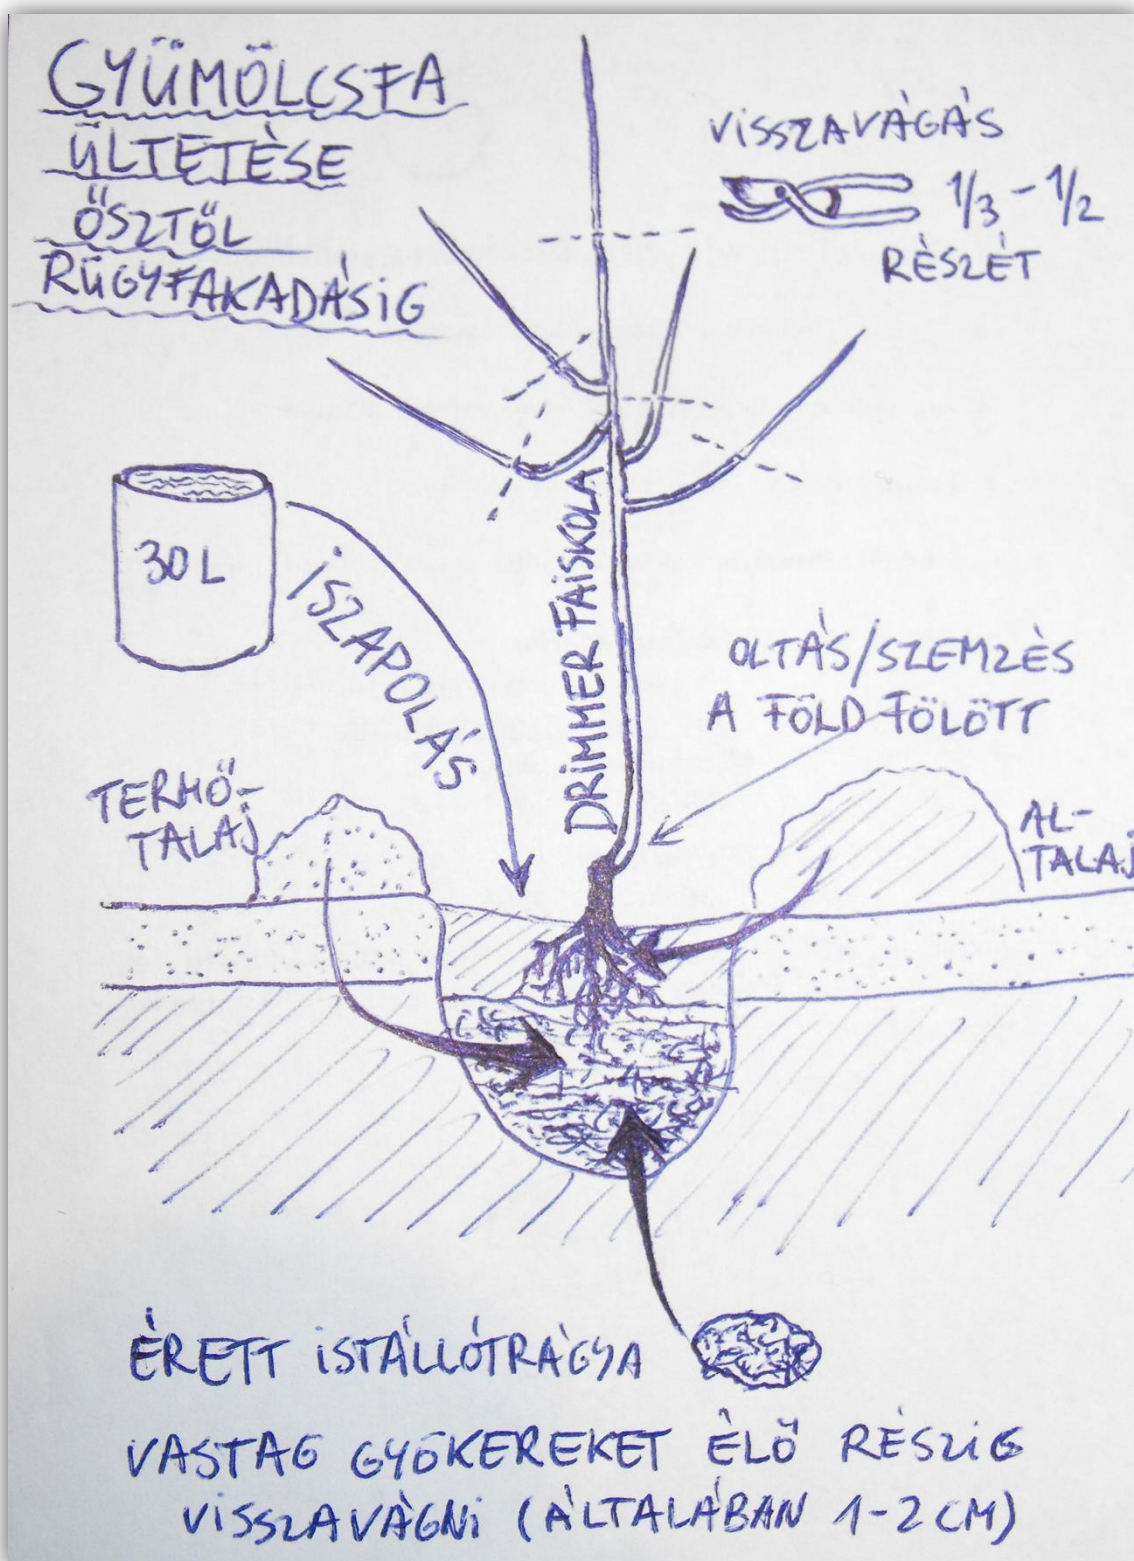 GYÜMÖLCSFA
ÜLTETÉSE
ŐSZTŐL
RÜGYFAKADÁSIG
VISSZAVÁGÁS
1/3 - 1/2
RÉSZÉT
30 L
ISZAPOLÁS
DRIMMER FAISKOLA
OLTÁS/SZEMZÉS
A FÖLD FÖLÖTT
TERMŐ-
TALAJ
AL-
TALAJ
ÉRETT ISTÁLLÓTRÁGYA
VASTAG GYÖKEREKET ÉLŐ RÉSZIG
VISSZAVÁGNI (ÁLTALÁBAN 1-2 CM)